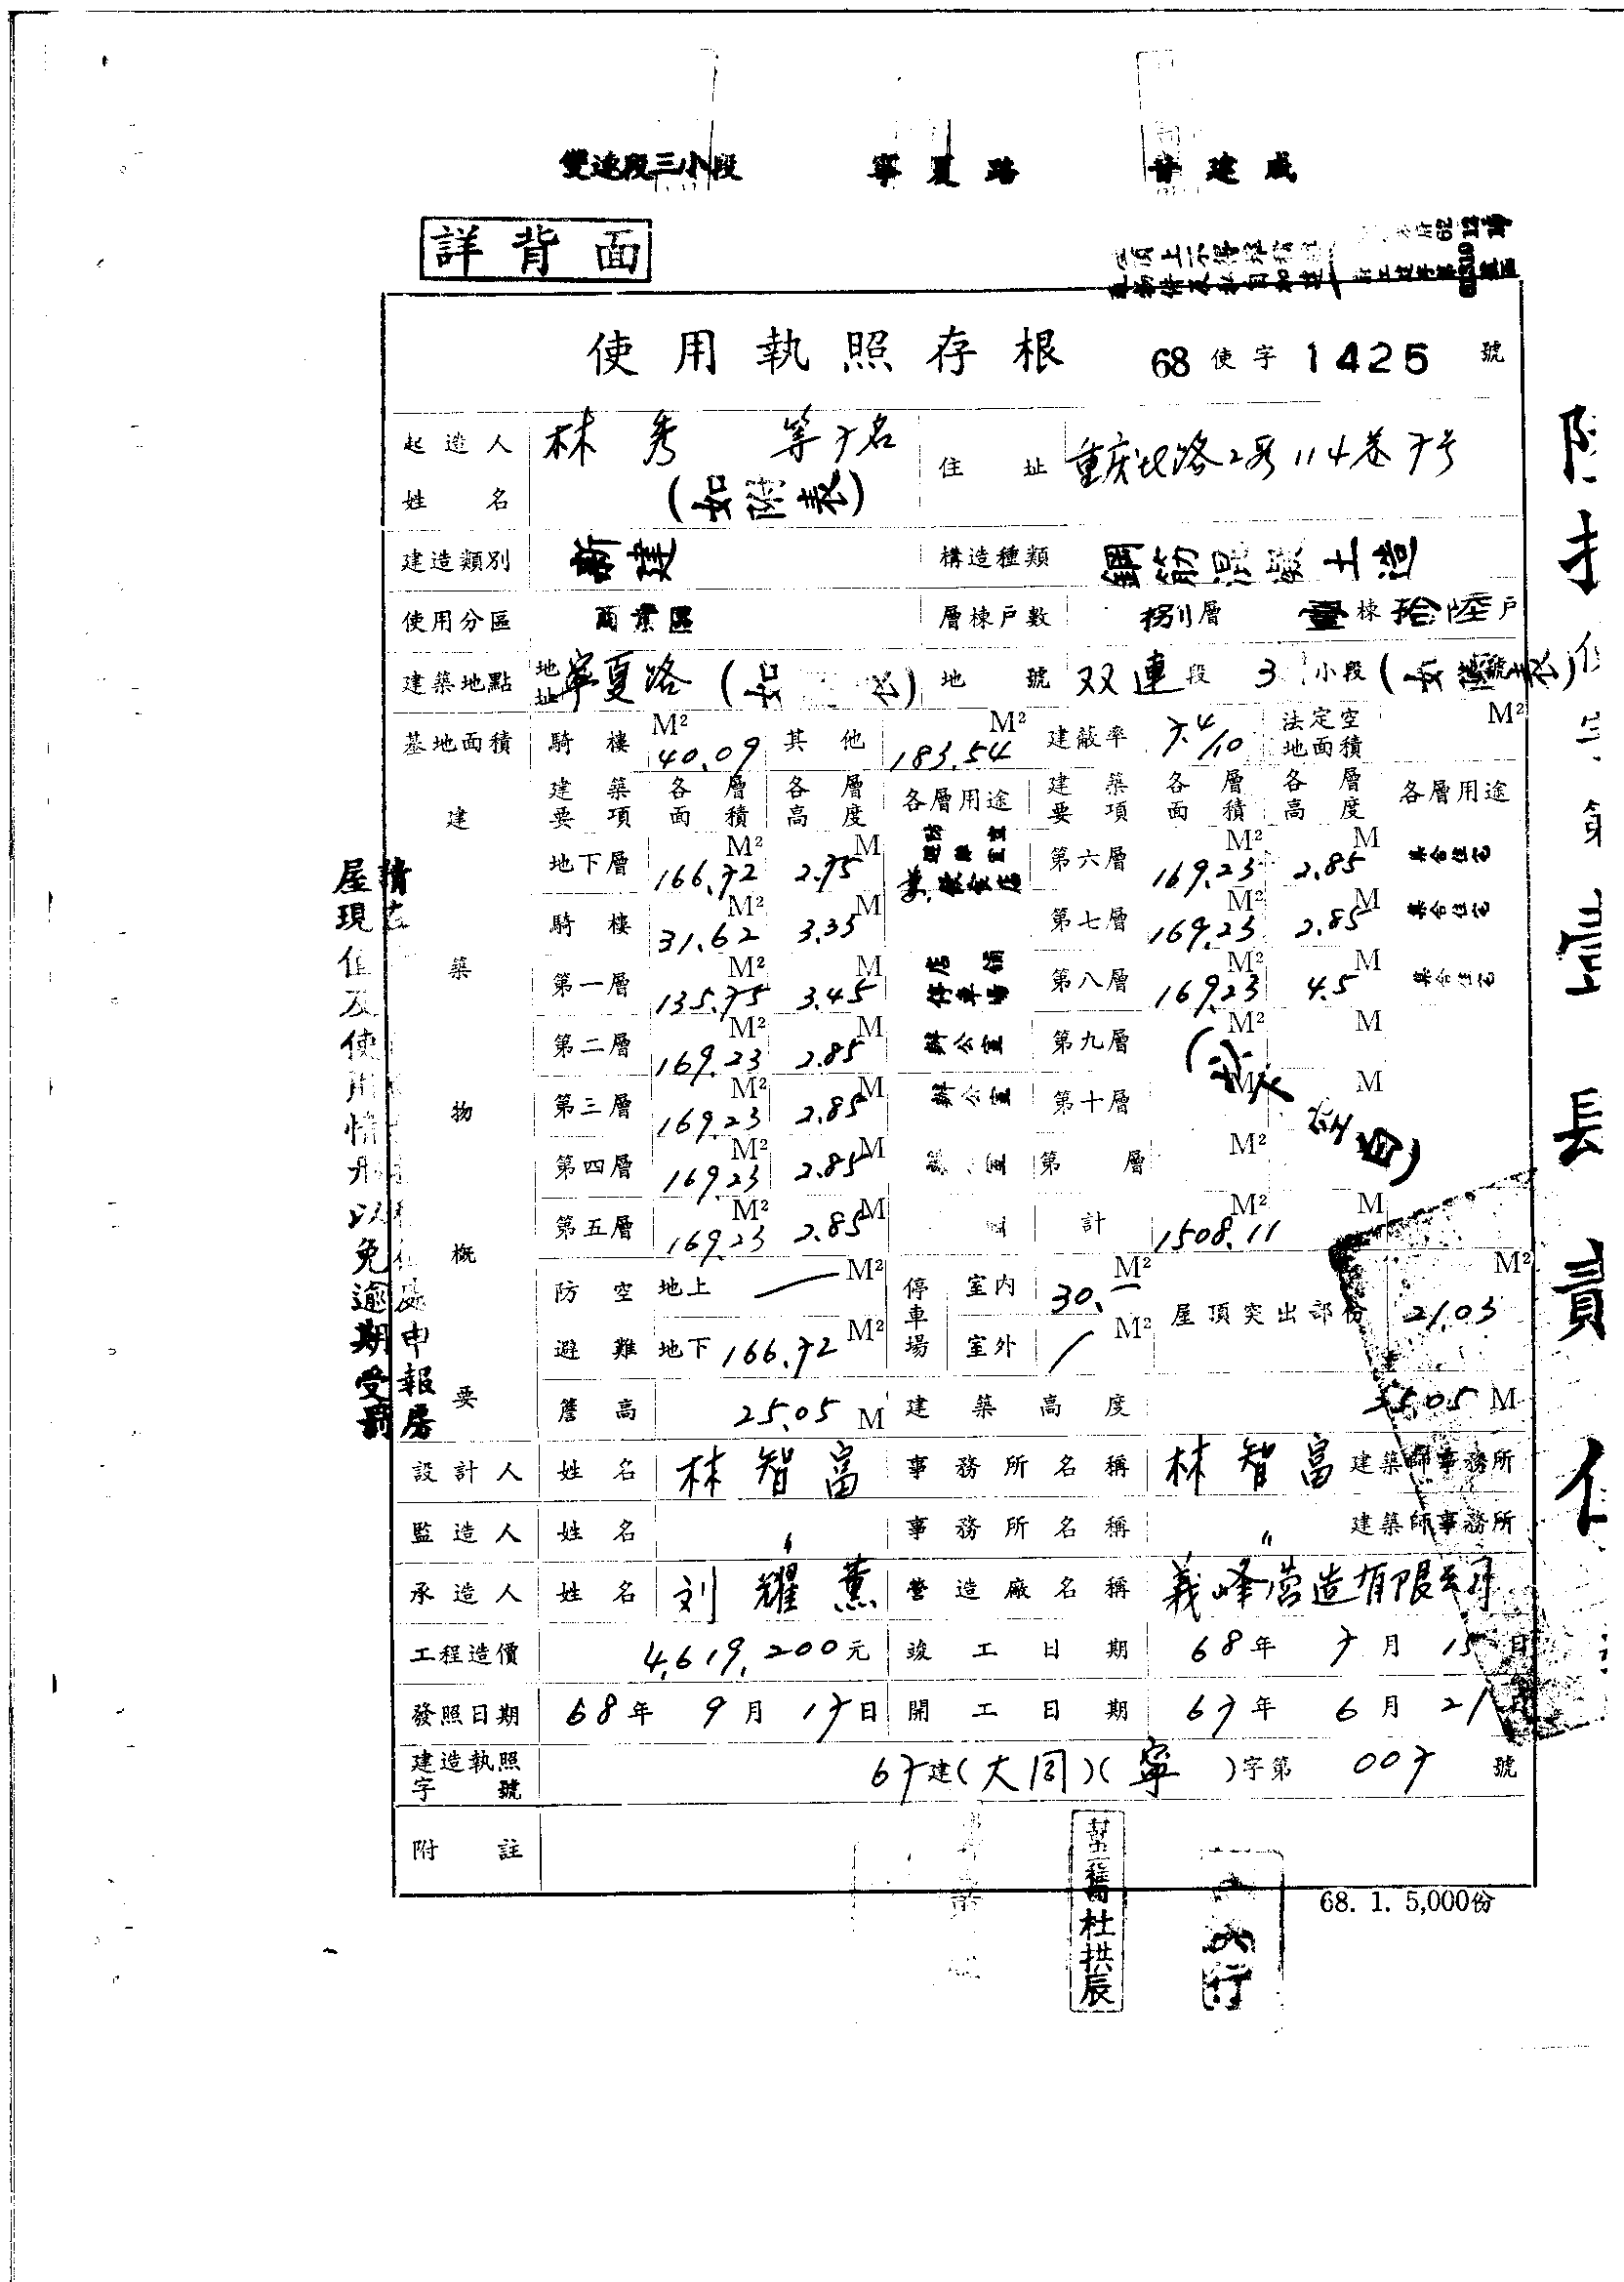 雙連段三小段 寧夏路 建成
詳背面
使用執照存根 68 使字 1425 號
起造人姓名 林秀 等7名 (如附表) 住址 重庆北路2段114巷7号
建造類別 新建 構造種類 鋼筋混凝土造
使用分區 商業區 層棟戶數 捌層 壹棟拾陸戶
建築地點 地址 寧夏路 (如 ) 地號 双連段 3 小段 (
基地面積 騎樓 40.09 M² 其他 183.54 M² 建蔽率 7.4/10 法定空地面積 M²
建築物概要
建築要項 各層面積 各層高度 各層用途 建築要項 各層面積 各層高度 各層用途
地下層 166.72 M² 2.75 M 第六層 169.23 M² 2.85 M 集合住宅
騎樓 31.62 M² 3.35 M 第七層 169.23 M² 2.85 M 集合住宅
第一層 135.75 M² 3.45 M 店舖 停車場 第八層 169.23 M² 4.5 M 集合住宅
第二層 169.23 M² 2.85 M 辦公室 第九層 M² M
第三層 169.23 M² 2.85 M 辦公室 第十層 M² M
第四層 169.23 M² 2.85 M 室 第 層 M²
第五層 169.23 M² 2.85 M 計 1508.11 M² M
防空避難 地上 — M² 停車場 室內 30.— M² 屋頂突出部份 21.03 M²
地下 166.72 M² 室外 / M²
簷高 25.05 M 建築高度 M
設計人 姓名 林智富 事務所名稱 林智富 建築師事務所
監造人 姓名 〃 事務所名稱 〃 建築師事務所
承造人 姓名 刘耀薰 營造廠名稱 義峰营造有限公司
工程造價 4,619,200元 竣工日期 68年 7月 15日
發照日期 68年 9月 17日 開工日期 67年 6月 21日
建造執照字號 67建(大同)(寧)字第 007 號
附註
68. 1. 5,000份
杜拱辰
行
屋現住及使用情形以免逾期受罰
申報房
長責任